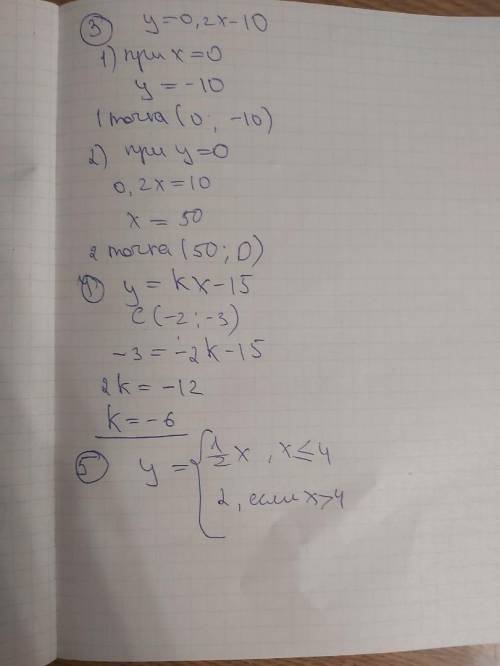 3 y=0,2x-10
1) при x=0
y=-10
1 точка (0; -10)
2) при y=0
0,2x=10
x=50
2 точка (50; 0)
4 y=kx-15
C(-2;-3)
-3=-2k-15
2k=-12
k=-6
5 y={1/2x, x≤4
2, если x>4